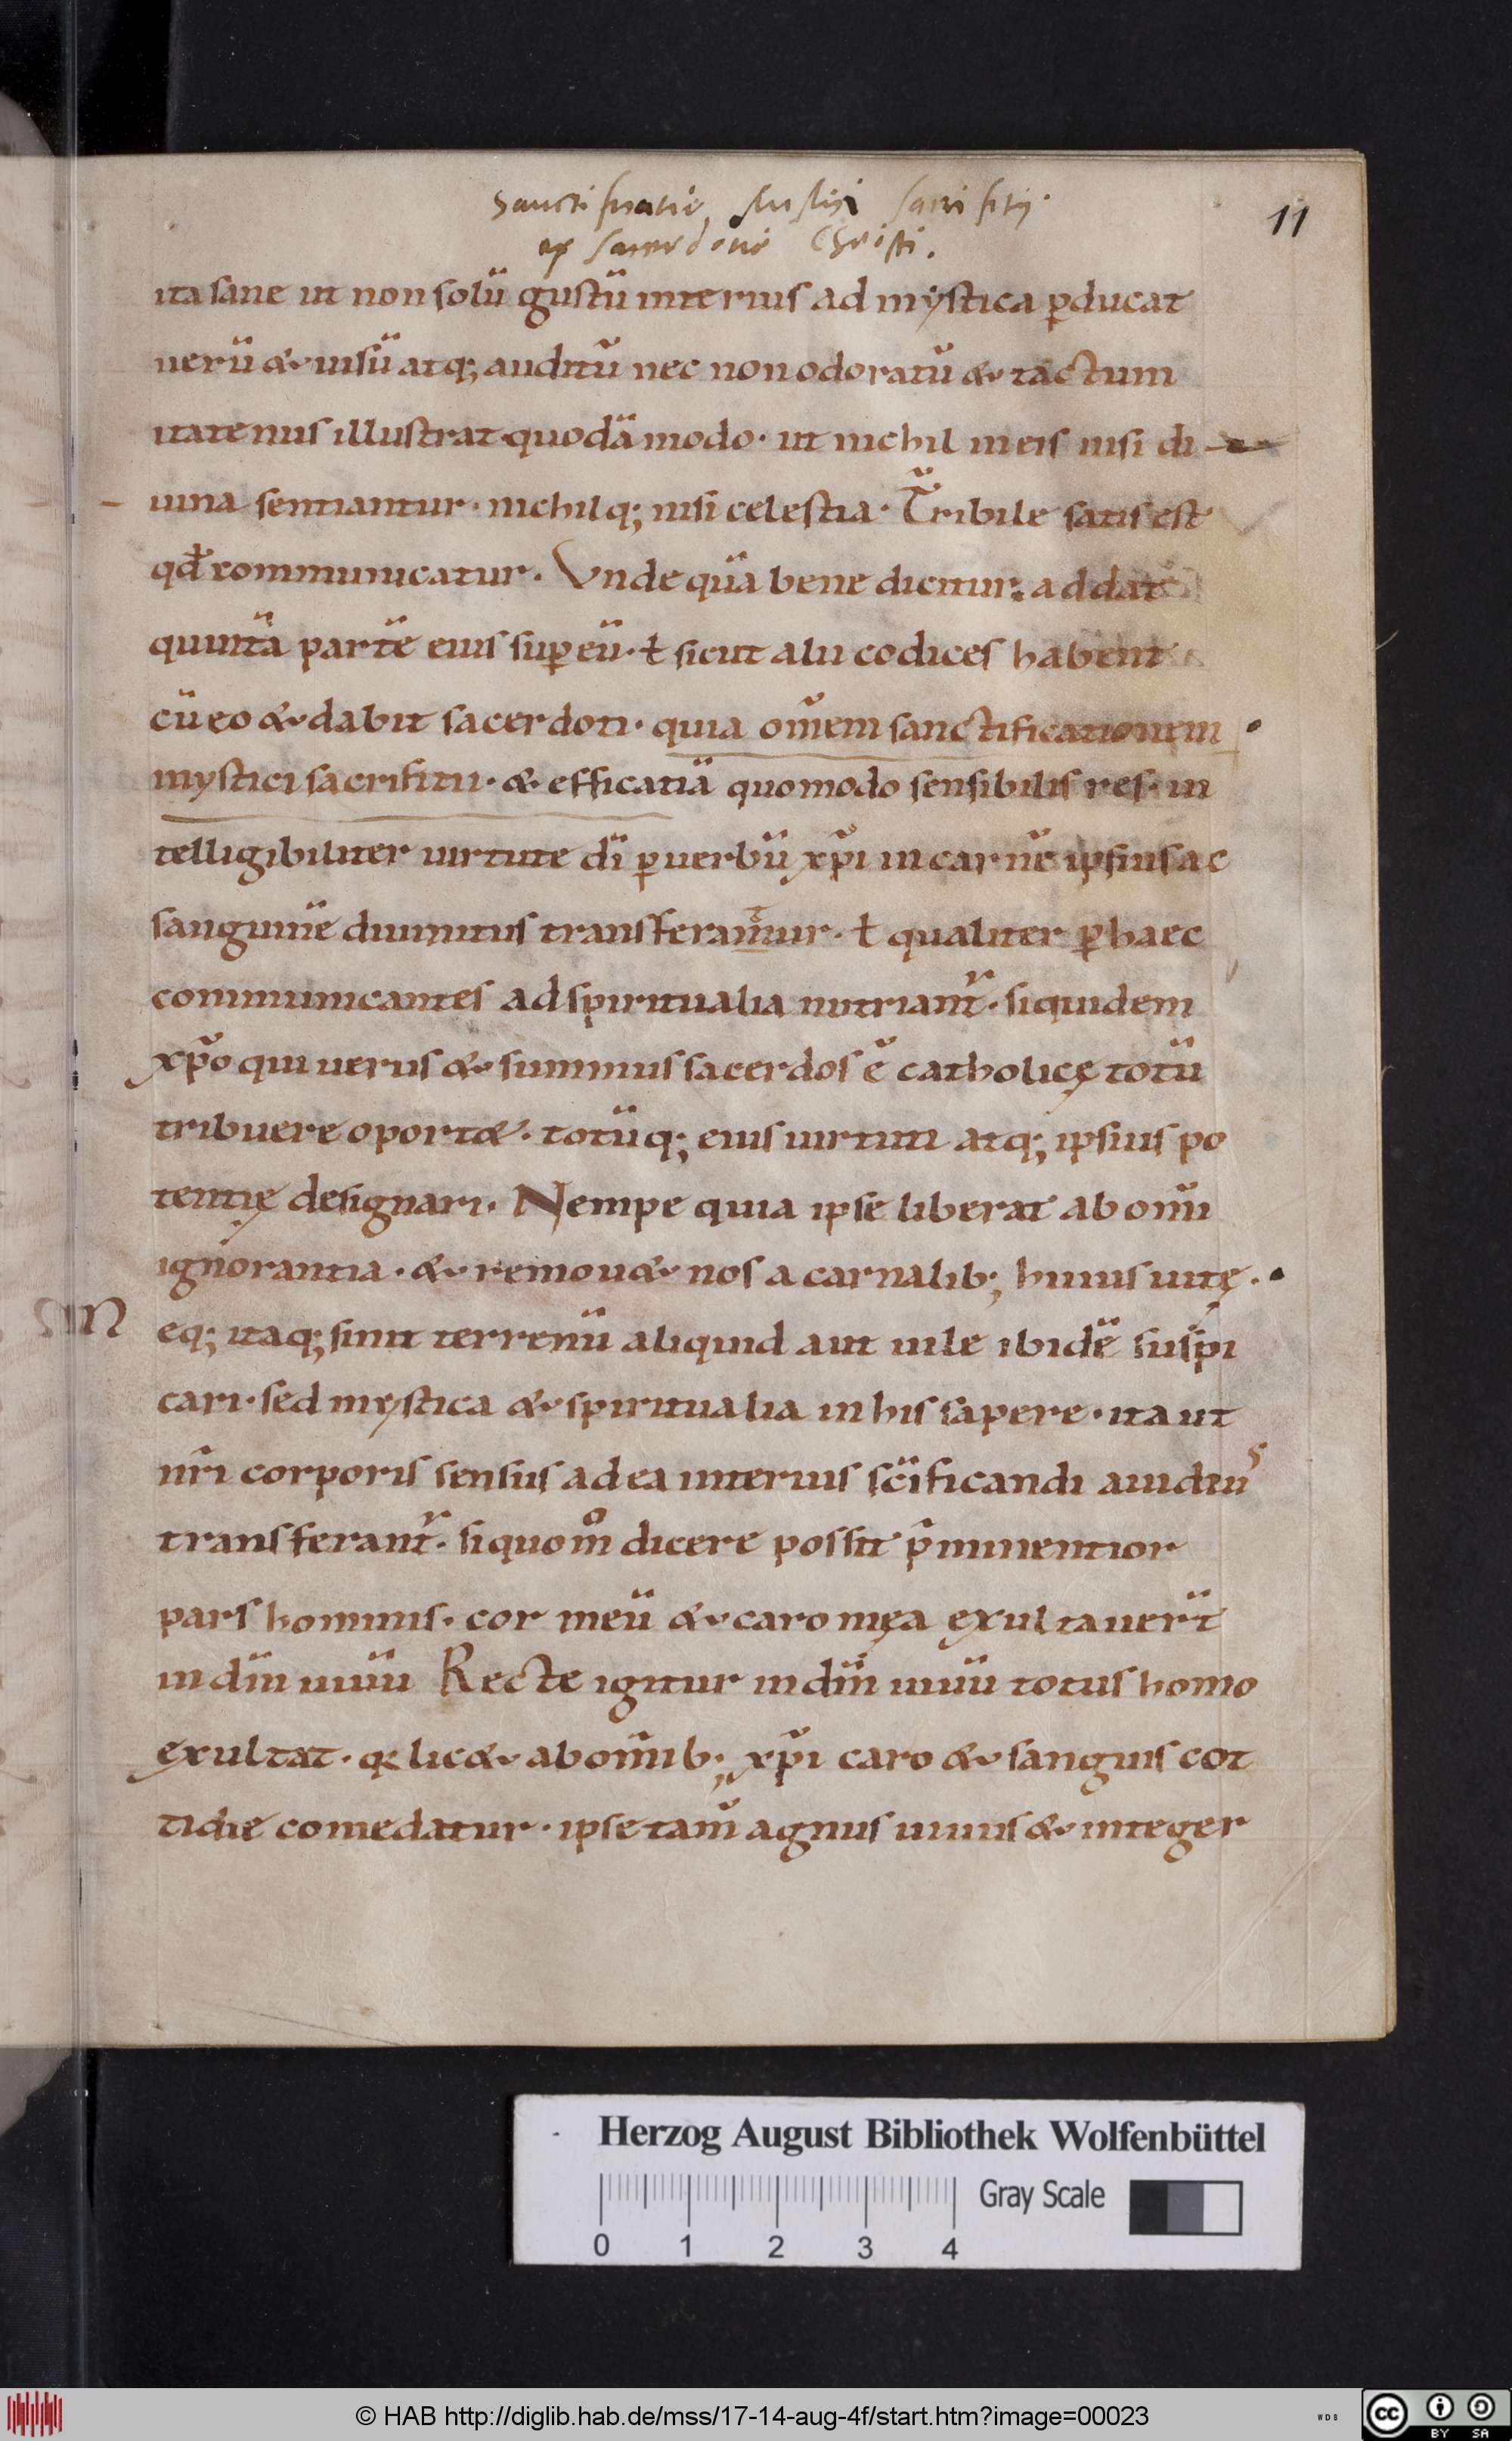 Sanctificatio mystici sacrifitij
ex sacerdotio Christi.
11
ita sane ut non solū gustū interius ad mystica ꝑducat
uerū &uisū atq; auditū nec non odoratū & tactum
itatenus illustrat quodā modo· ut nichil in eis nisi di
uina sentiantur· nichilq; nisi celestia· T̄ribile satis est
qđ communicatur. Vnde quā bene dicitur; addat
quintā partē eius suꝑ eū· ł sicut alii codices habent
cū eo & dabit sacerdoti· quia om̄em sanctificationem
mystici sacrifitii· & efficatiā quomodo sensibilis res· in
telligibiliter uirtute dī ꝑ uerbū xp̄i in carnē ipsius ac
sanguinē diuinitus transferamur· ł qualiter ꝑ haec
communicantes ad spiritualia nutriant᷑· siquidem
xp̄o qui uerus & summus sacerdos ē catholicę totū
tribuere oport&· totūq; eius uirtuti atq; ipsius po
tentię designari. Nempe quia ipse liberat ab om̄i
ignorantia· & remou& nos a carnalib; huius uitę·
N eq; itaq; sinit terrenū aliquid aut uile ibidē suspi
cari· sed mystica & spiritualia in his sapere· ita ut
nr̄i corporis sensus ad ea interius sc̄ificandi auidius
transferant᷑· si quom̊ dicere possit p̄minentior
pars hominis· cor meū & caro mea exultauer̄t
in dm̄ uiuū Recte igitur in dm̄ uiuū totus homo
exultat· q lic& ab om̄ib; xp̄i caro & sanguis cot
tidie comedatur· ipse tam̄ agnus uiuus & integer
Herzog August Bibliothek Wolfenbüttel
Gray Scale
0 1 2 3 4
© HAB http://diglib.hab.de/mss/17-14-aug-4f/start.htm?image=00023
WDB
cc BY SA